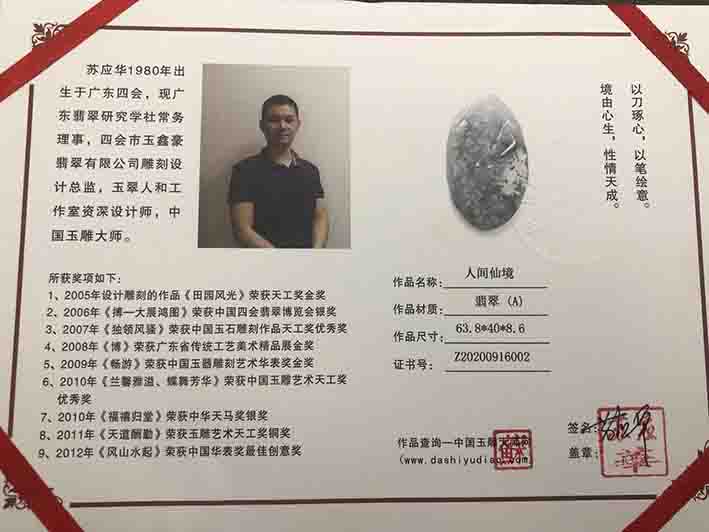 苏应华1980年出
生于广东四会，现广
东翡翠研究学社常务
理事，四会市玉鑫豪
翡翠有限公司雕刻设
计总监，玉翠人和工
作室资深设计师，中
国玉雕大师。
以刀琢心，以笔绘意。
境由心生，性情天成。
所获奖项如下：
1、2005年设计雕刻的作品《田园风光》荣获天工奖金奖
2、2006年《搏一大展鸿图》荣获中国四会翡翠博览会银奖
3、2007年《独领风骚》荣获中国玉石雕刻作品天工奖优秀奖
4、2008年《博》荣获广东省传统工艺美术精品展金奖
5、2009年《畅游》荣获中国玉器雕刻艺术华表奖金奖
6、2010年《兰馨雅溢、蝶舞芳华》荣获中国玉雕艺术天工奖
优秀奖
7、2010年《福禧归堂》荣获中华天马奖银奖
8、2011年《天道酬勤》荣获玉雕艺术天工奖铜奖
9、2012年《风山水起》荣获中国华表奖最佳创意奖
作品名称：人间仙境
作品材质：翡翠（A）
作品尺寸：63.8*40*8.6
证书号：Z20200916002
作品查询—中国玉雕大师网
(www.dashiyudiao.com)
签名：
盖章：